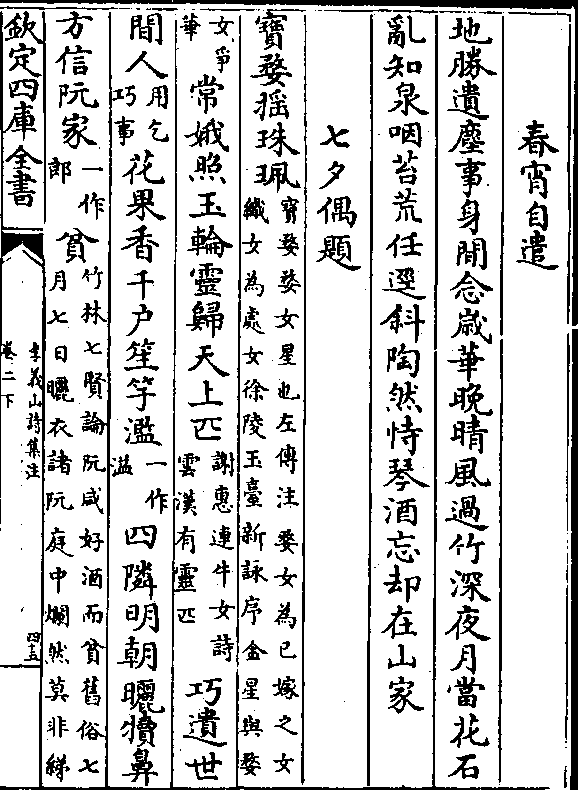 春宵自遣
地勝遺塵事身閒念歲華晚晴風過竹深夜月當花石
亂知泉咽苔荒任逕斜陶然恃琴酒忘却在山家
七夕偶題
寶婺搖珠珮
寶婺婺女星也左傳注婺女為已嫁之女
織女為處女徐陵玉臺新詠序金星與婺
女爭
華
常娥照玉輪靈歸天上匹
謝惠連牛女詩
雲漢有靈匹
巧遺世
間人
用乞
巧事
花果香千户笙竽濫
一作
溢
四隣明朝曬犢鼻
方信阮家
一作
郎
貧
竹林七賢論阮咸好酒而貧舊俗七
月七日曬衣諸阮庭中爛然莫非綈
欽定四庫全書
李義山詩集注
卷二下
四五